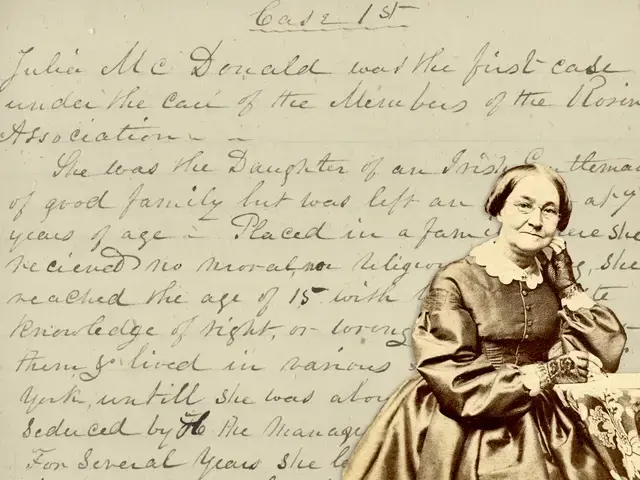 Case 1st
Julia Mc Donald was the first case
under the care of the Members of the Rosin
Association
She was the Daughter of an Irish Gentleman
of good family but was left an at 7
years of age Placed in a fam she
recieved no moral, nor religiou g, she
reached the age of 15 with te
knowledge of right, or wrong
them, lived in various
York, untill she was abou
seduced by the Manag
For several years she